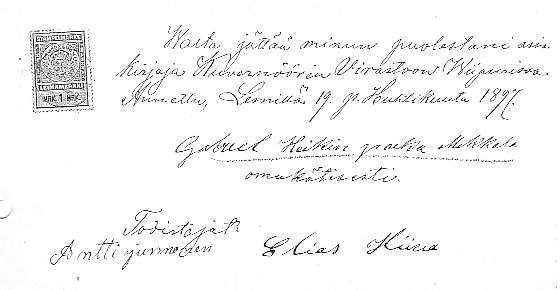 MRK. 1 MRK.
Walta jättää minun puolestani asia
kirjaja Kuvernöörin Virastoon Wiipurissa.
Annettu, Lemillä 19. p. Huhtikuuta 1897.
Gabriel Heikin poika Mekkala
omakätisesti.
Todistajat
Antti Elias